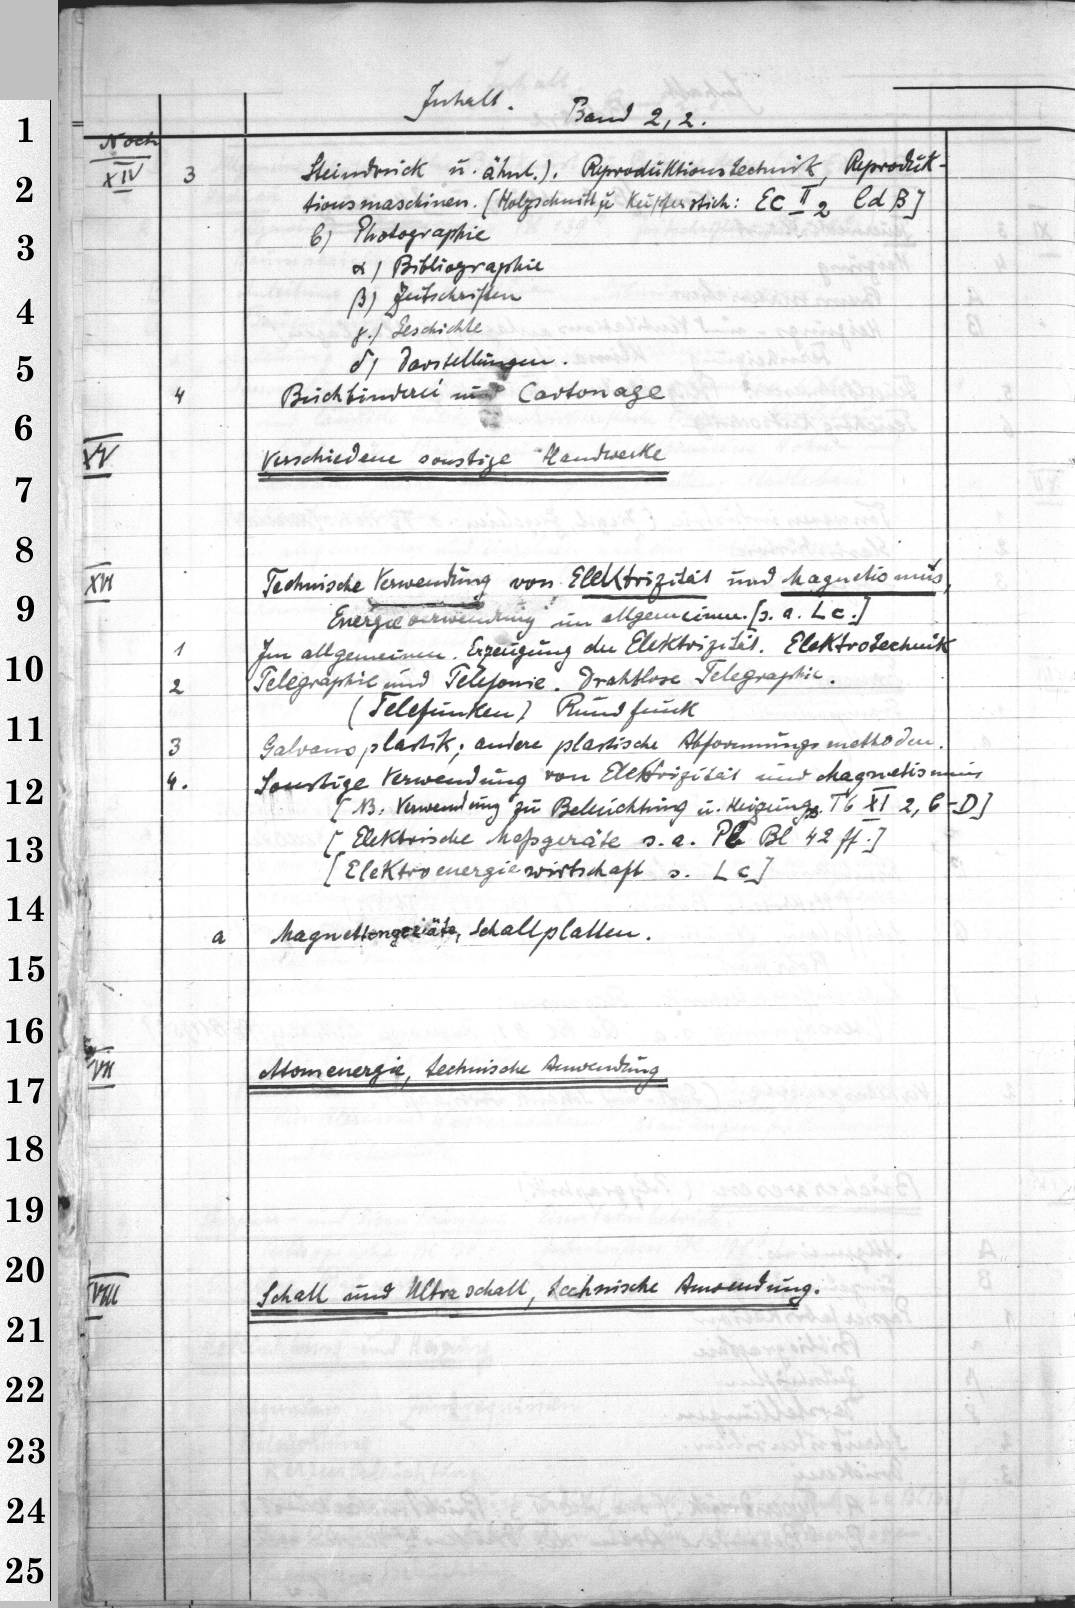 Inhalt. Band 2,2.
Noch
XIV 3 Steindruck u. ähnl.). Reproduktionstechnik, Reproduk-
tionsmaschinen. [Holzschnitt u Kupferstich: Ec II 2 C d B]
b) Photographie
α) Bibliographie
β) Zeitschriften
γ.) Geschichte
δ) Darstellungen.
4 Buchbinderei und Cartonage
XV Verschiedene sonstige Handwerke
XVI Technische Verwendung von Elektrizität und Magnetismus,
Energieverwendung im allgemeinen. [s. a. Lc.]
1 Im allgemeinen. Erzeugung der Elektrizität. Elektrotechnik
2 Telegraphie und Telefonie. Drahtlose Telegraphie.
(Telefunken) Rundfunk
3 Galvanoplastik; andere plastische Abformungsmethoden.
4. Sonstige Verwendung von Elektrizität und Magnetismus
[NB. Verwendung zu Beleuchtung u. Heizung s. Tb XI 2, C-D]
[Elektrische Meßgeräte s. a. Pb Bl 42 ff.]
[Elektroenergiewirtschaft s. Lc]
a Magnettongeräte, Schallplatten.
VII Atomenergie, technische Anwendung
VIII Schall und Ultraschall, technische Anwendung.
1
2
3
4
5
6
7
8
9
10
11
12
13
14
15
16
17
18
19
20
21
22
23
24
25